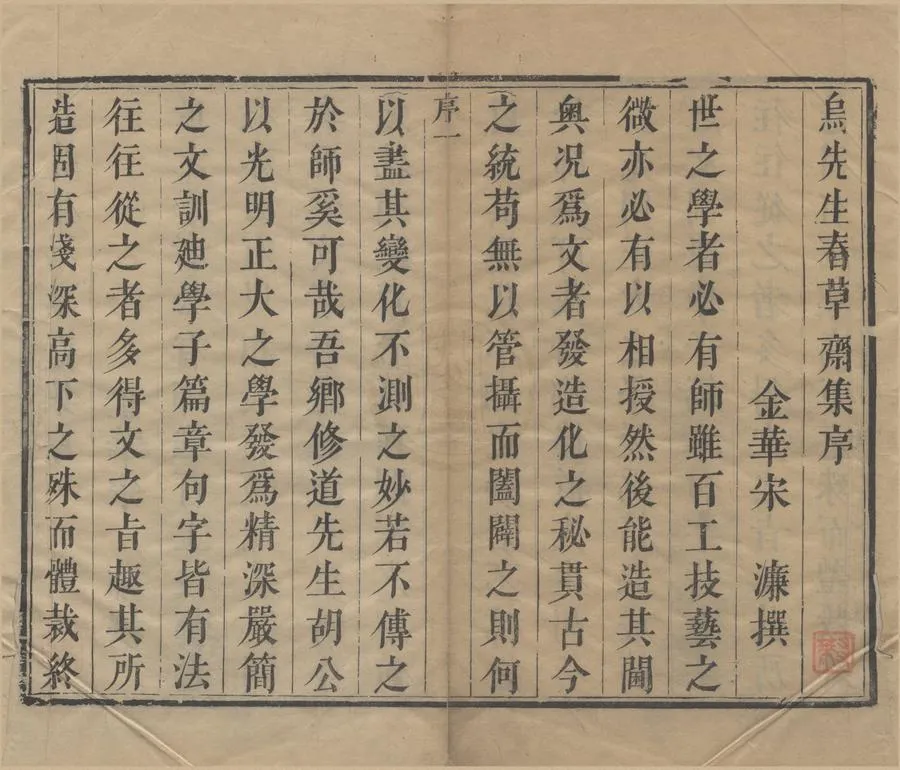 烏先生春草齋集序
金華宋　濂撰
世之學者必有師雖百工技藝之
微亦必有以相授然後能造其閫
奧況爲文者發造化之秘貫古今
之統苟無以管攝而闔闢之則何
序一
以盡其變化不測之妙若不傳之
於師奚可哉吾鄉修道先生胡公
以光明正大之學發爲精深嚴簡
之文訓廸學子篇章句字皆有法
往往從之者多得文之㫖趣其所
造固有淺深高下之殊而體裁終